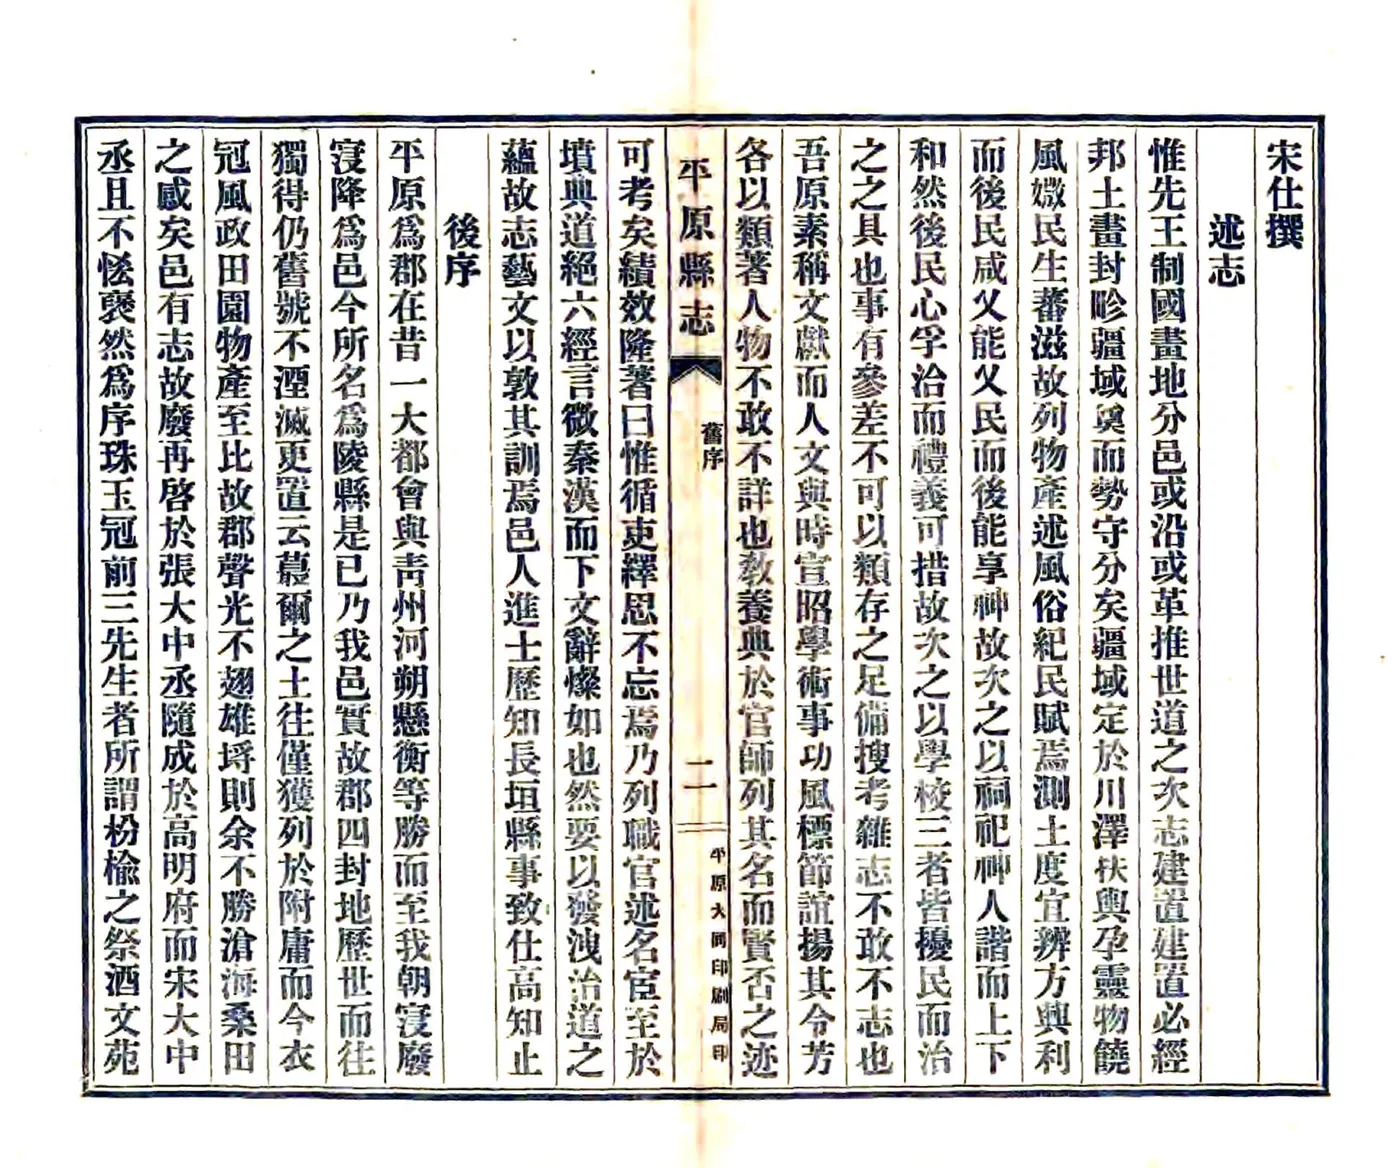 宋仕撰
述志
惟先王制國畫地分邑或沿或革推世道之次志建置建置必經
邦土畫封畛疆域奠而勢守分矣疆域定於川澤扶輿孕靈物饒
風媺民生蕃滋故列物產述風俗紀民賦焉測土度宜辨方興利
而後民咸乂能乂民而後能享神故次之以祠祀神人諧而上下
和然後民心孚洽而禮義可措故次之以學校三者皆擾民而治
之之具也事有參差不可以類存之足備搜考雜志不敢不志也
吾原素稱文獻而人文與時宣昭學術事功風標節誼揚其令芳
各以類著人物不敢不詳也敎養典於官師列其名而賢否之迹
平原縣志
舊序
二
平原大同印刷局印
可考矣績效隆著曰惟循吏繹思不忘焉乃列職官述名宦至於
墳典道絕六經言微秦漢而下文辭燦如也然要以發洩治道之
蘊故志藝文以敦其訓焉邑人進士歷知長垣縣事致仕高知止
後序
平原爲郡在昔一大都會與靑州河朔懸衡等勝而至我朝寖廢
寖降爲邑今所名爲陵縣是已乃我邑實故郡四封地歷世而往
獨得仍舊號不湮滅更置云蕞爾之土往僅獲列於附庸而今衣
冠風政田園物產至比故郡聲光不翅雄埒則余不勝滄海桑田
之感矣邑有志故廢再啓於張大中丞隨成於高明府而宋大中
丞且不恡褒然爲序珠玉冠前三先生者所謂枌楡之祭酒文苑